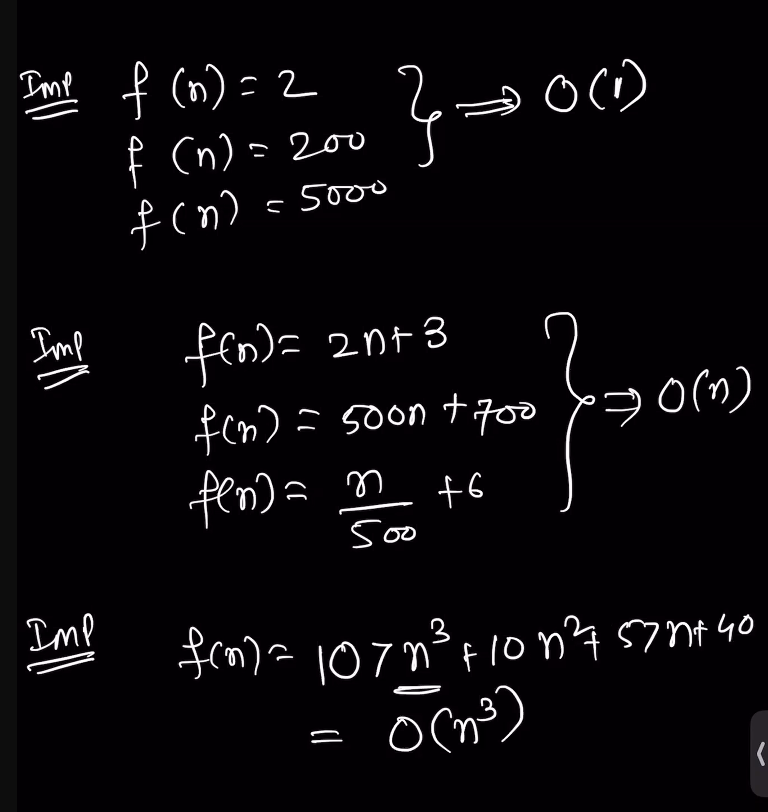 Imp f(n) = 2 } ⇒ O(1)
f(n) = 200
f(n) = 5000
Imp f(n) = 2n+3
f(n) = 500n + 700 } ⇒ O(n)
f(n) = n/500 + 6
Imp f(n) = 107n³ + 10n² + 57n + 40
= O(n³)